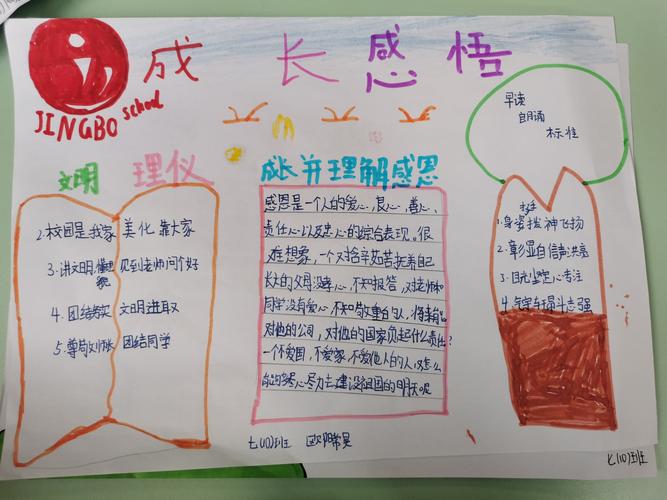 成长感悟
JINGBO school
文明 理仪
2.校园是我家 美化靠大家
3.讲文明,懂礼貌 见到老师问个好
4.团结务实 文明进取
5.尊敬师长 团结同学
成长并理解感恩
感恩是一个人的爱心、良心、善心、
责任心以及忠心的综合表现。很
难想象,一个对含辛茹苦抚养自己
长大的父母没孝心,不知报答,对老师和
同学没有爱心,不知敬重的人,将来能
对他的公司,对他的国家负起什么责任?
一个不爱国,不爱家,不爱他人的人,又怎么
能尽心尽力去建设祖国的明天呢
七(10)班
早读
朗诵
标准
1.身姿挺拔神飞扬
2.彰显自信声洪亮
3.目光坚定心专注
斗志强
七(10)班